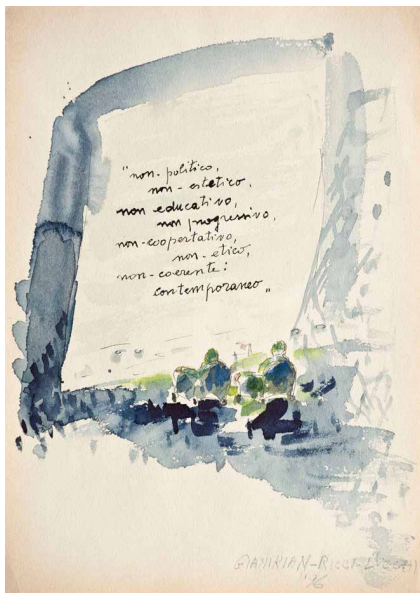 "non-politico,
non-estetico,
non educativo,
non progressivo,
non-cooperativo,
non-etico,
non-coerente:
contemporaneo"
GIANIKIAN-RICCI-LUCCHI